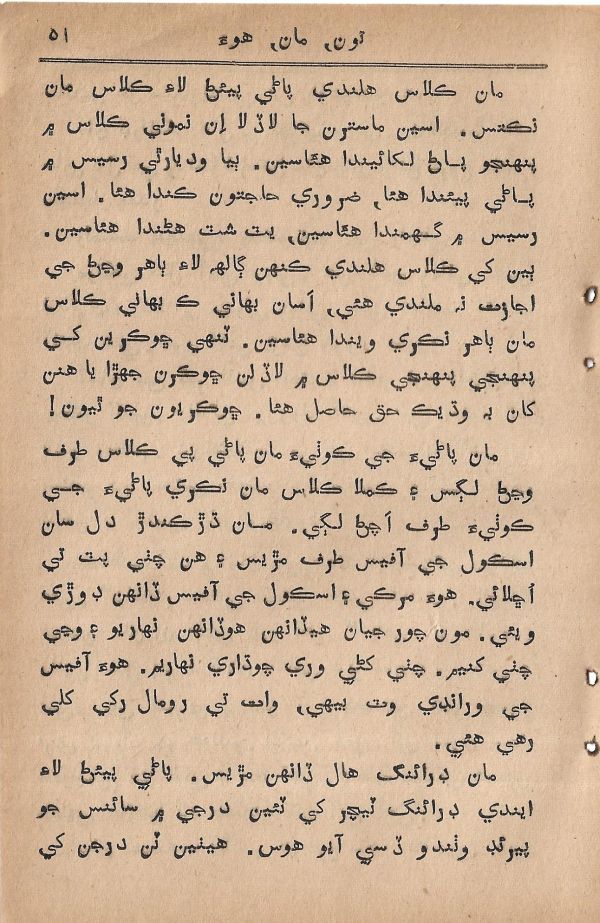 تون، مان، هوءَ ٥١
مان ڪلاس هلندي پاڻي پيئڻ لاءِ ڪلاس مان
نڪتس. اسين ماسترن جا لاڏلا اِن نموني ڪلاس ۾
پنهنجو پاڻ لکائيندا هئاسين. ٻيا وديارٿي رسيس ۾
پاڻي پيئندا هئا، ضروري حاجتون ڪندا هئا. اسين
رسيس ۾ گهمندا هئاسين، يٽ شٽ هڻندا هئاسين.
ٻين کي ڪلاس هلندي ڪنهن ڳالهہ لاءِ ٻاهر وڃڻ جي
اجازت نہ ملندي هئي، اَسان بهاني ڪ بهاني ڪلاس
مان ٻاهر نڪري ويندا هئاسين. ٽنهي ڇوڪرين کي
پنهنجي پنهنجي ڪلاس ۾ لاڏلن ڇوڪرن جهڙا يا هنن
کان بہ وڌيڪ حق حاصل هئا. ڇوڪريون جو ٿيون!
مان پاڻيءَ جي ڪوٺيءَ مان پاڻي پي ڪلاس طرف
وڃڻ لڳس ۽ ڪملا ڪلاس مان نڪري پاڻيءَ جي
ڪوٺيءَ طرف اَچڻ لڳي. مان ڌڙڪندڙ دل سان
اسڪول جي آفيس طرف مڙيس ۽ هن چٺي پٽ تي
اُڇلائي. هوءَ مرڪي ۽ اسڪول جي آفيس ڏانهن ڊوڙي
ويئي. مون چور جيان هيڏانهن هوڏانهن نهاريو ۽ وڃي
چٺي کنيم. چٺي کڻي وري چوڌاري نهاريم. هوءَ آفيس
جي ورانڊي وٽ بيهي، وات تي رومال رکي کلي
رهي هئي.
مان ڊرائنگ هال ڏانهن مڙيس. پاڻي پيئڻ لاءِ
ايندي ڊرائنگ ٽيچر کي ٽئين درجي ۾ سائنس جو
پيرئڊ وٺندو ڏسي آيو هوس. هيٺين ٽن درجن کي